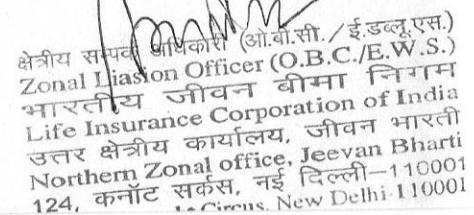 क्षेत्रीय सम्पर्क अधिकारी (ओ.बी.सी./ई.डब्लू.एस.)
Zonal Liasion Officer (O.B.C./E.W.S.)
भारतीय जीवन बीमा निगम
Life Insurance Corporation of India
उत्तर क्षेत्रीय कार्यालय, जीवन भारती
Northern Zonal office, Jeevan Bharti
124, कनॉट सर्कस, नई दिल्ली–110001
Circus, New Delhi-110001